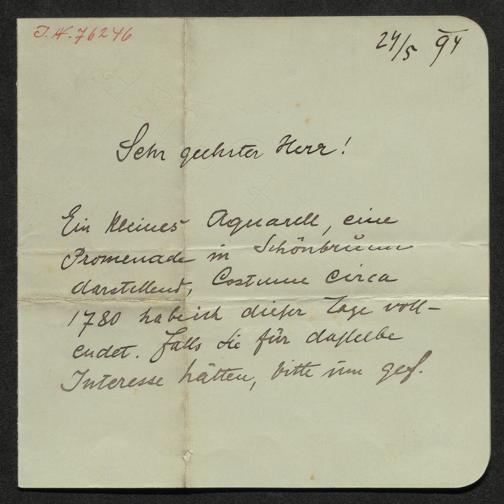 J.N. 76246
24/5 94
Sehr geehrter Herr!
Ein kleines Aquarell, eine
Promenade in Schönbrunn
darstellend, Costume circa
1780 habe ich dieser Tage voll-
endet. Falls Sie für dasselbe
Interesse hätten, bitte um gef.